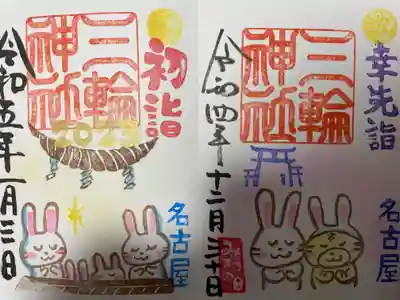 初詣
三輪
神社
2023
令和五年一月三日
名古屋
幸先詣
三輪
神社
令和四年十二月三十日
名古屋